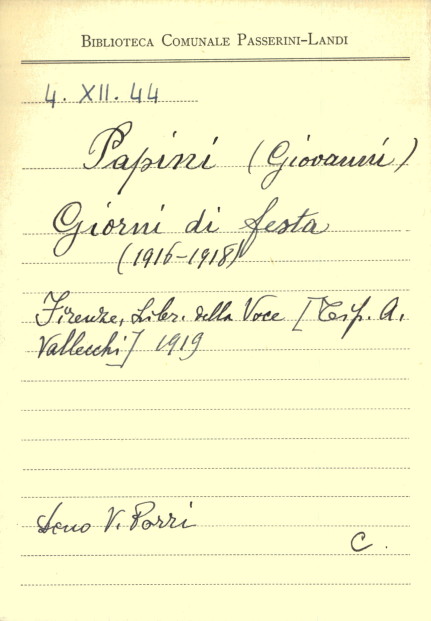 BIBLIOTECA COMUNALE PASSERINI-LANDI
4. XII. 44
Papini (Giovanni)
Giorni di festa
(1916-1918)
Firenze, Libr. della Voce [Tip. A.
Vallecchi] 1919
V. Porri
C.